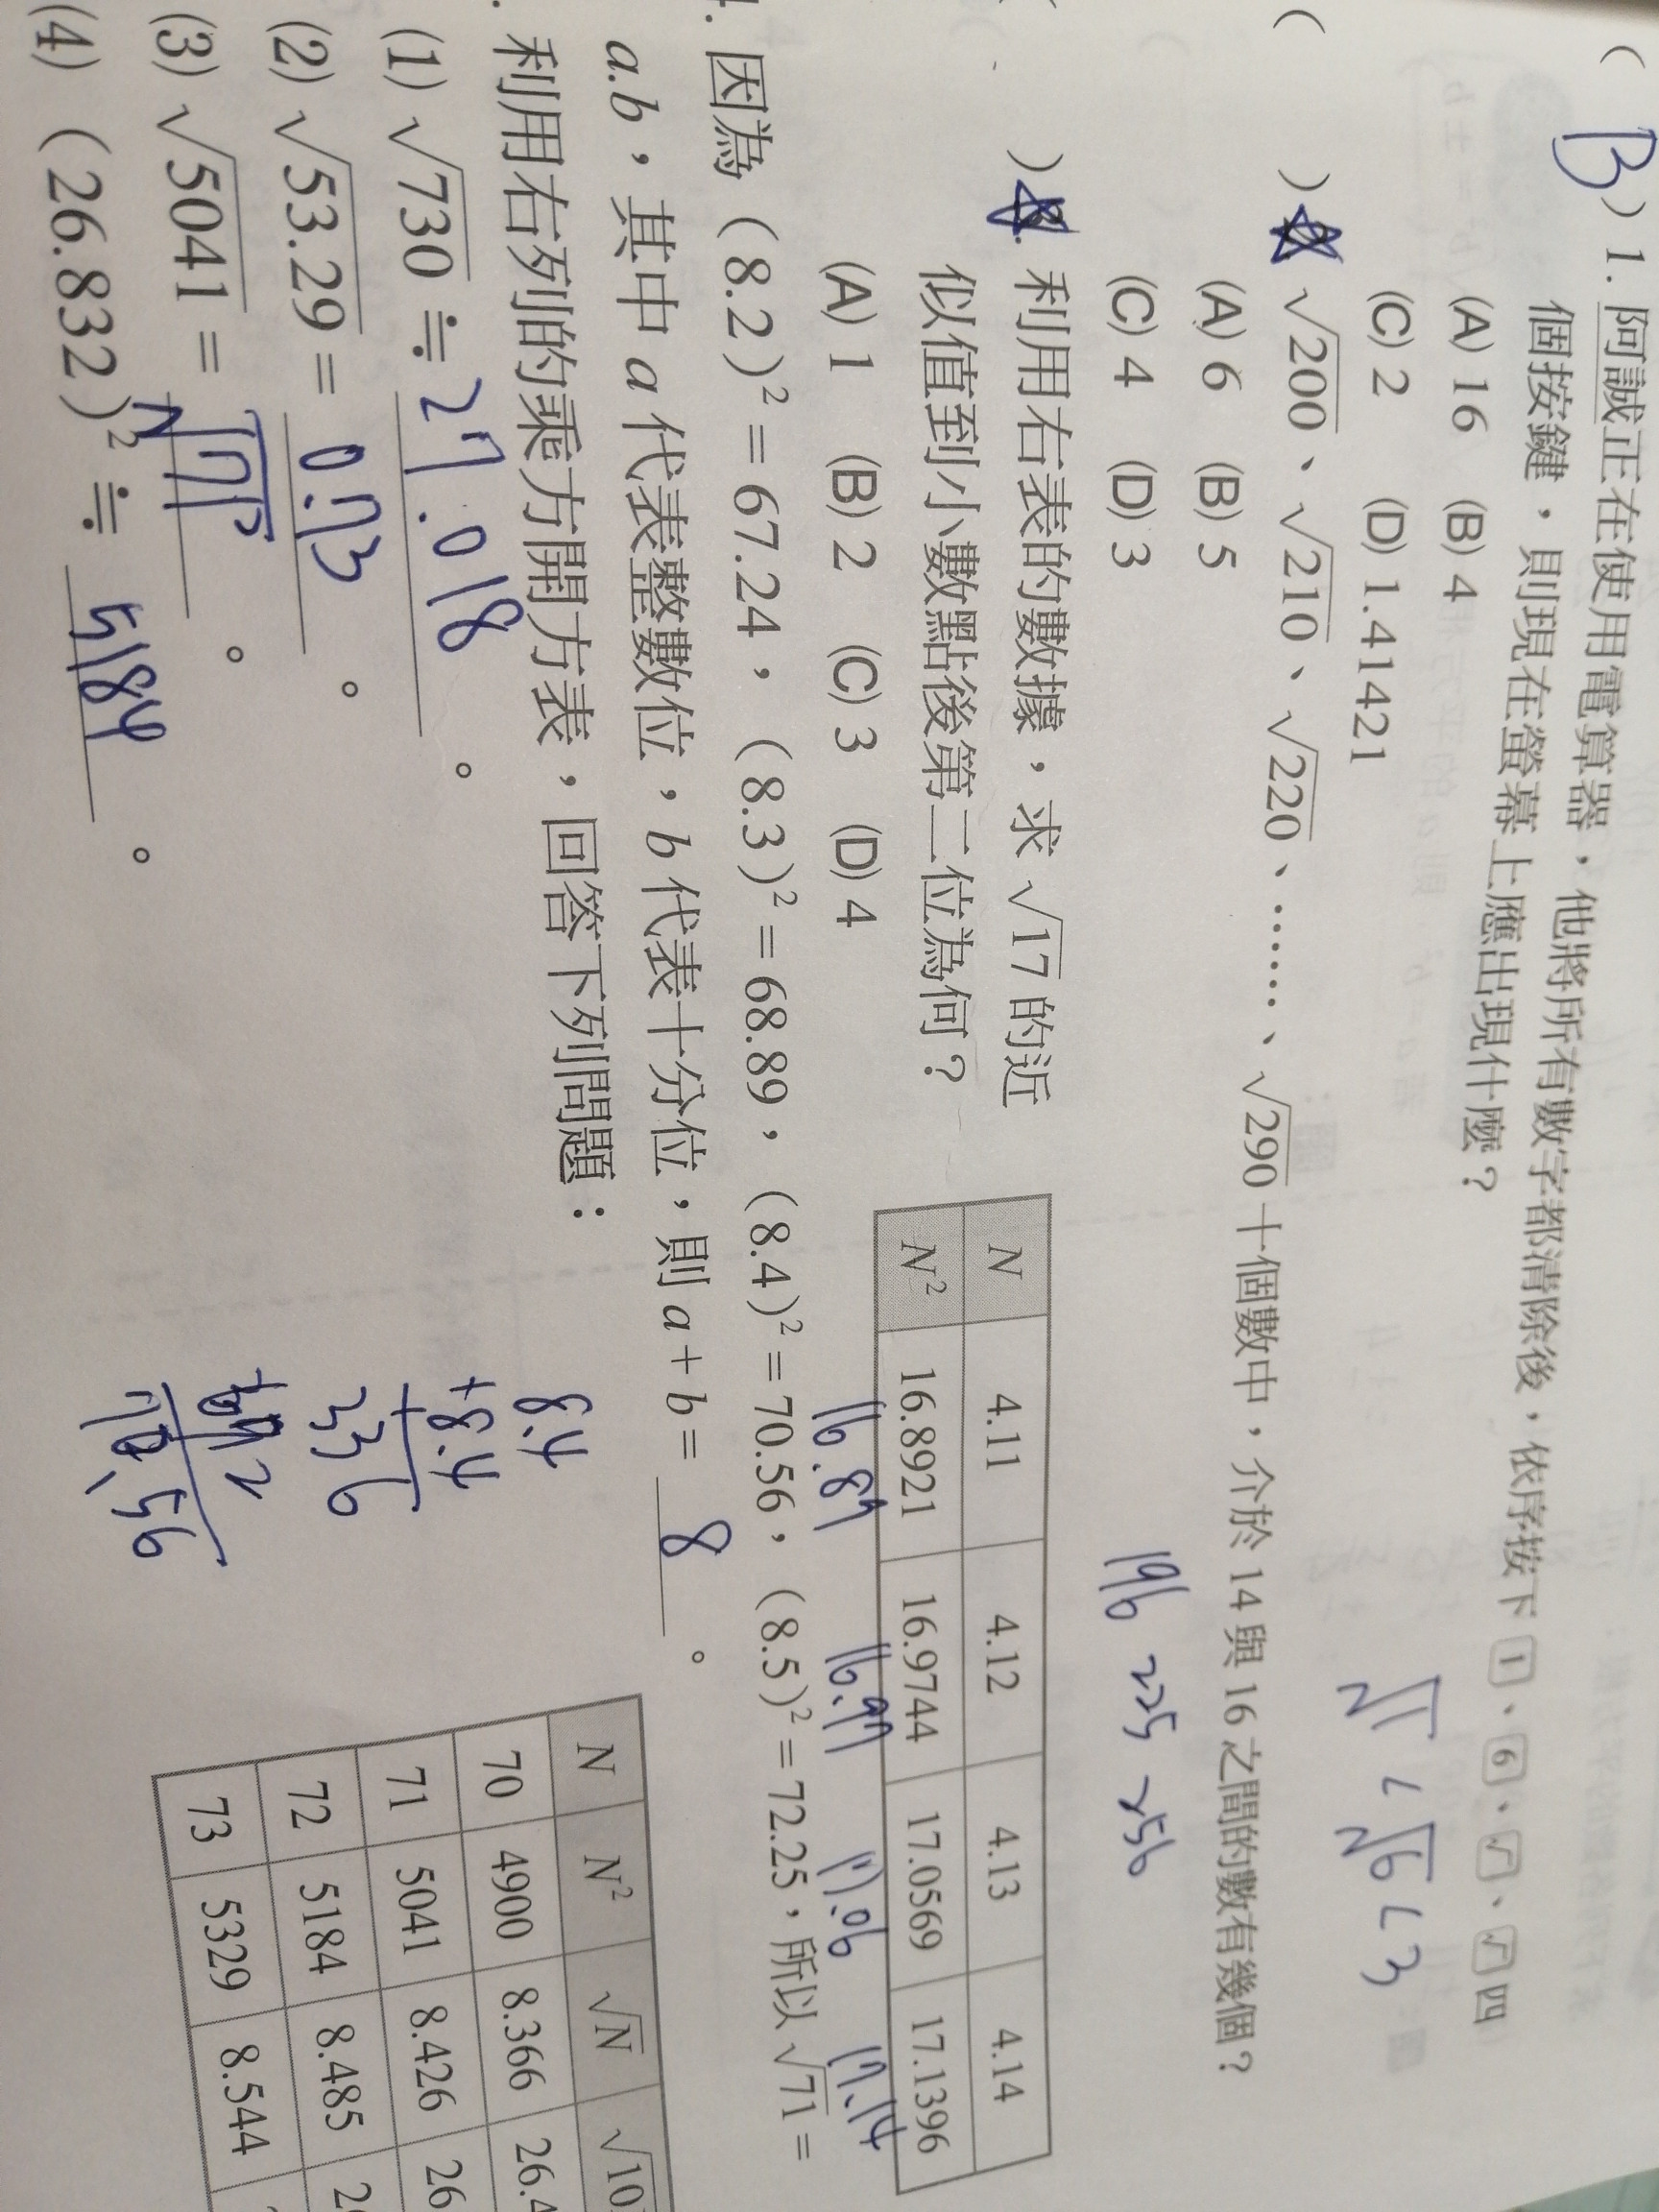 ( B ) 1. 阿誠正在使用電算器，他將所有數字都清除後，依序按下 1、6、√、√ 四
個按鍵，則現在在螢幕上應出現什麼？
(A) 16 (B) 4
(C) 2 (D) 1.41421
√1 < √6 < 3
( ) √200、√210、√220、……、√290 十個數中，介於 14 與 16 之間的數有幾個？
(A) 6 (B) 5
(C) 4 (D) 3
196 225 256
( ) 利用右表的數據，求 √17 的近
似值到小數點後第二位為何？
(A) 1 (B) 2 (C) 3 (D) 4
N 4.11 4.12 4.13 4.14
N² 16.8921 16.9744 17.0569 17.1396
16.89 16.97 17.06 17.14
因為 (8.2)² = 67.24，(8.3)² = 68.89，(8.4)² = 70.56，(8.5)² = 72.25，所以 √71 =
a.b，其中 a 代表整數位，b 代表十分位，則 a + b = 8 。
利用右列的乘方開方表，回答下列問題：
(1) √730 ≒ 27.018 。
(2) √53.29 = 0.73 。
(3) √5041 = √71 。
(4) (26.832)² ≒ 5184 。
8.4
+8.4
336
N N² √N
70 4900 8.366 26.4
71 5041 8.426 26
72 5184 8.485
73 5329 8.544